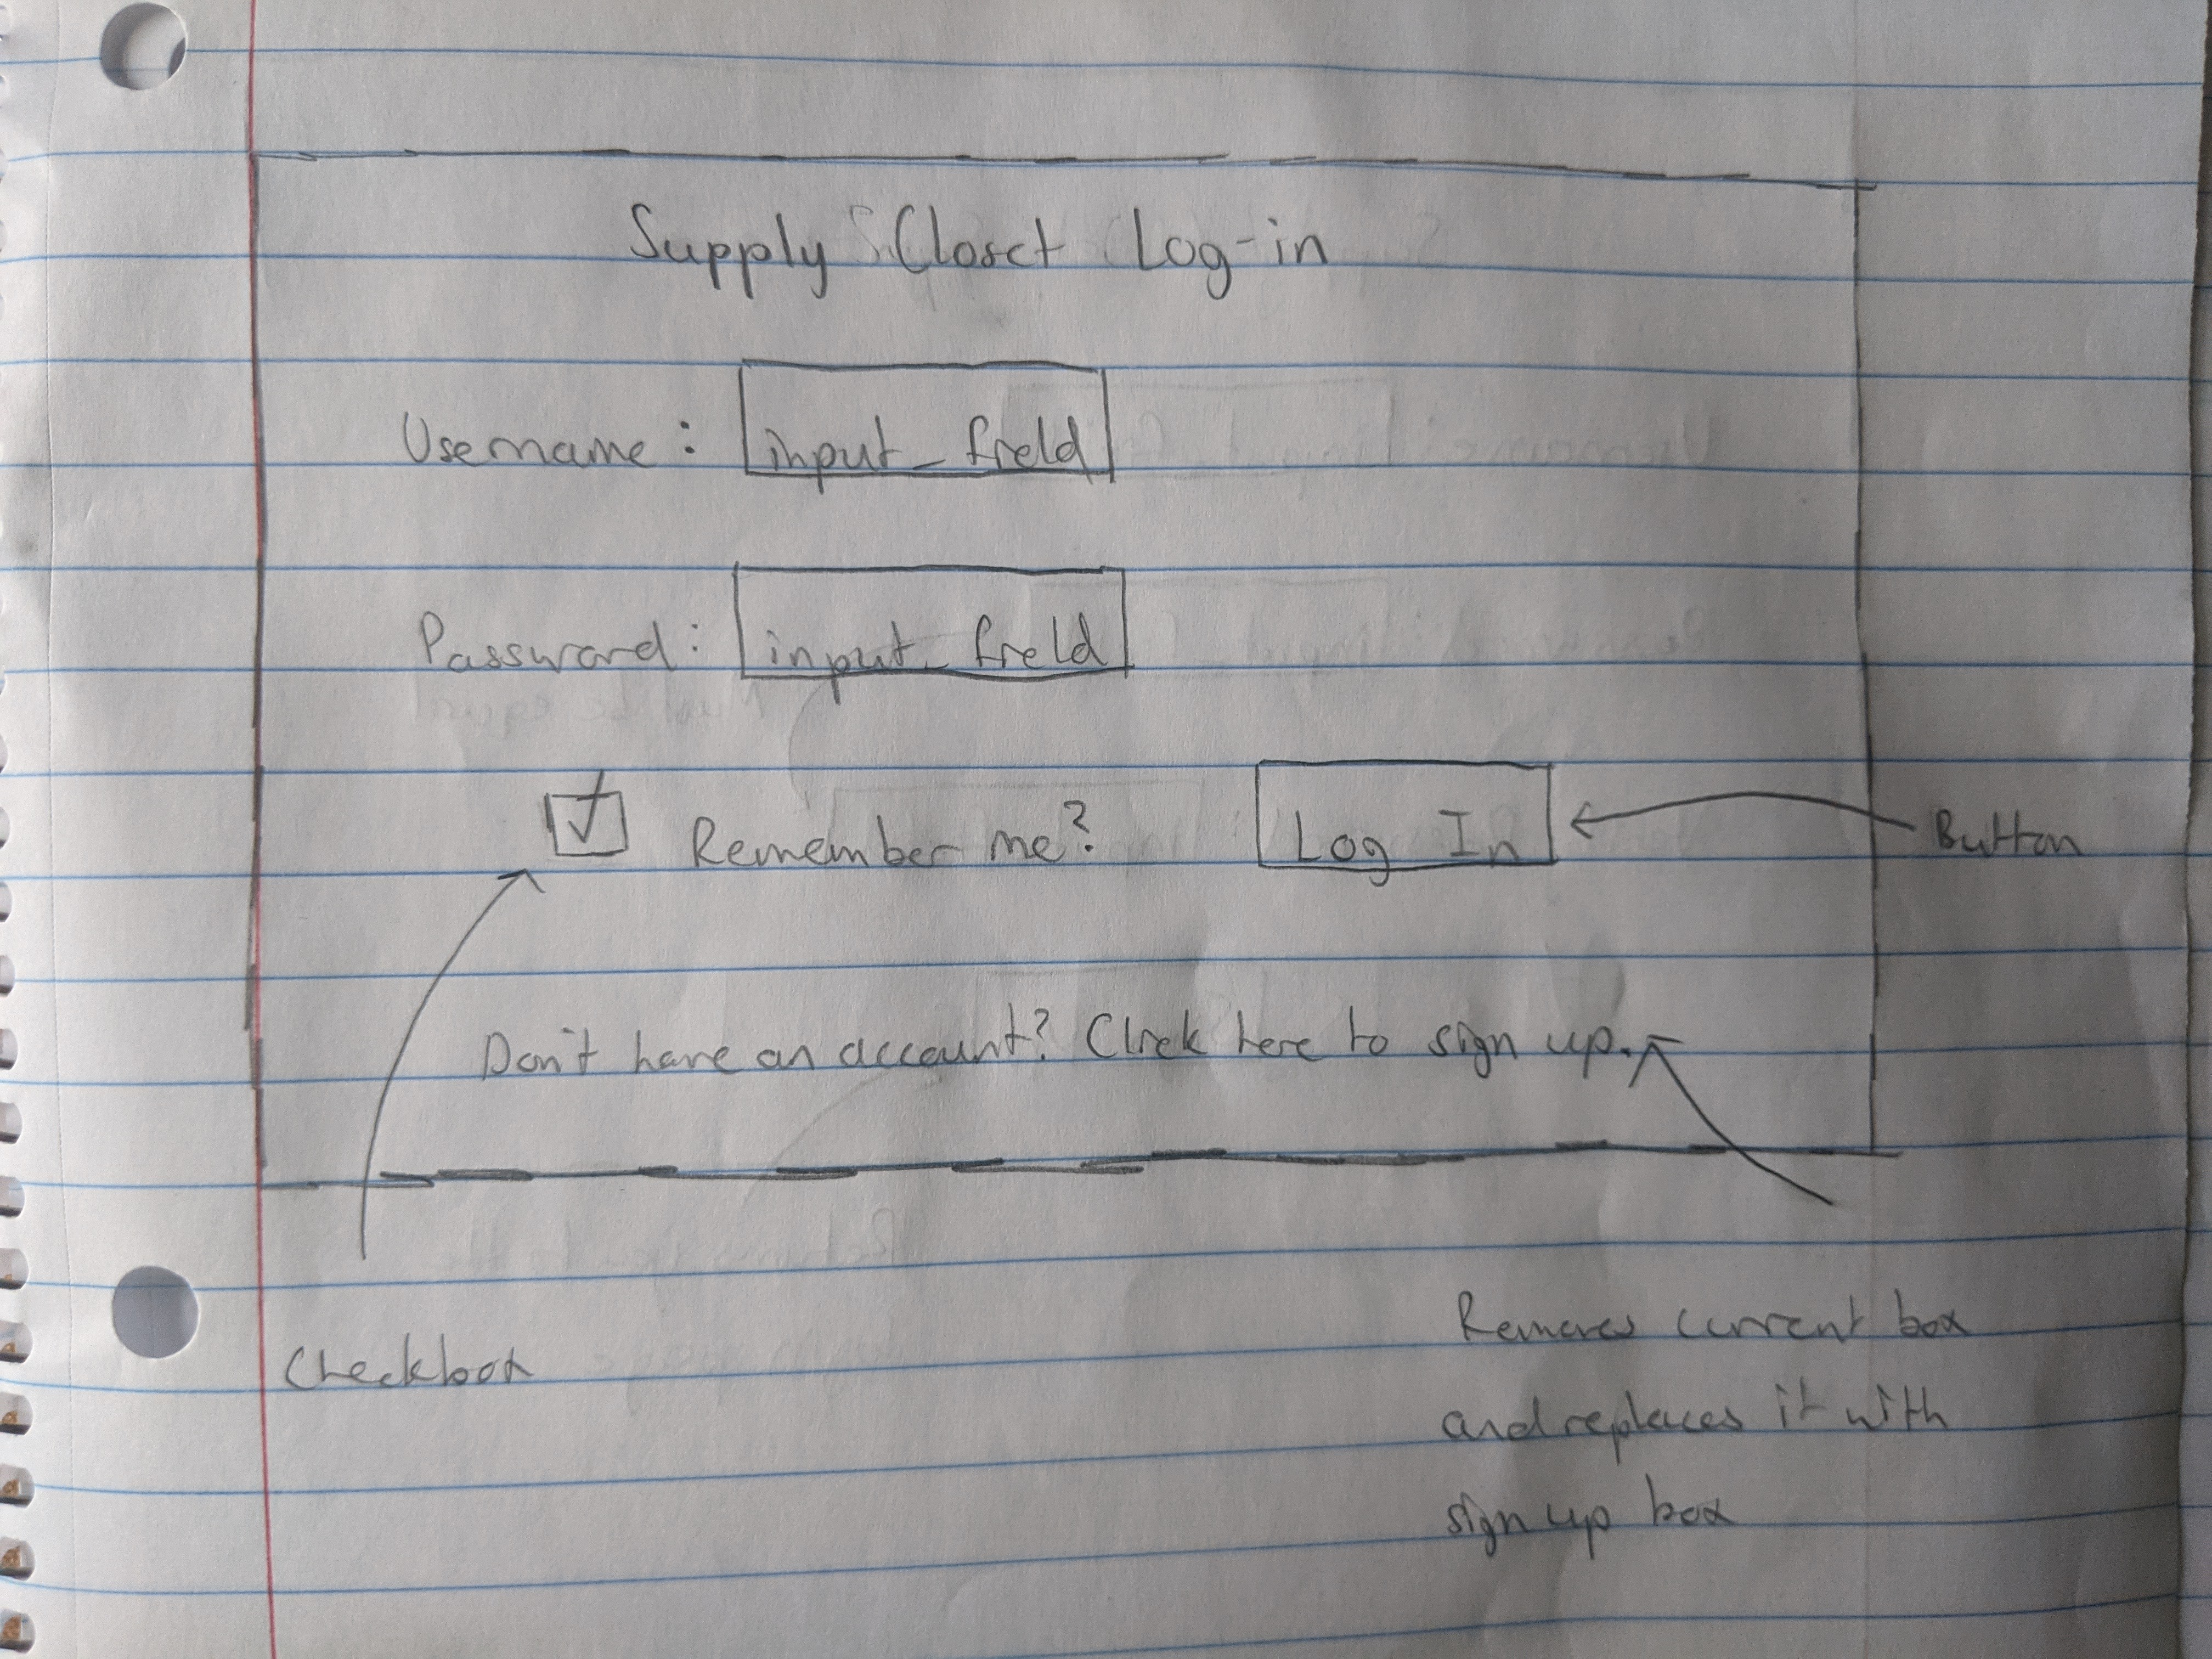 Supply Closet Log-in
Username: input_field
Password: input_field
Remember me? Log In
Button
Don't have an account? Click here to sign up.
Checkbox
Removes current box
and replaces it with
sign up box